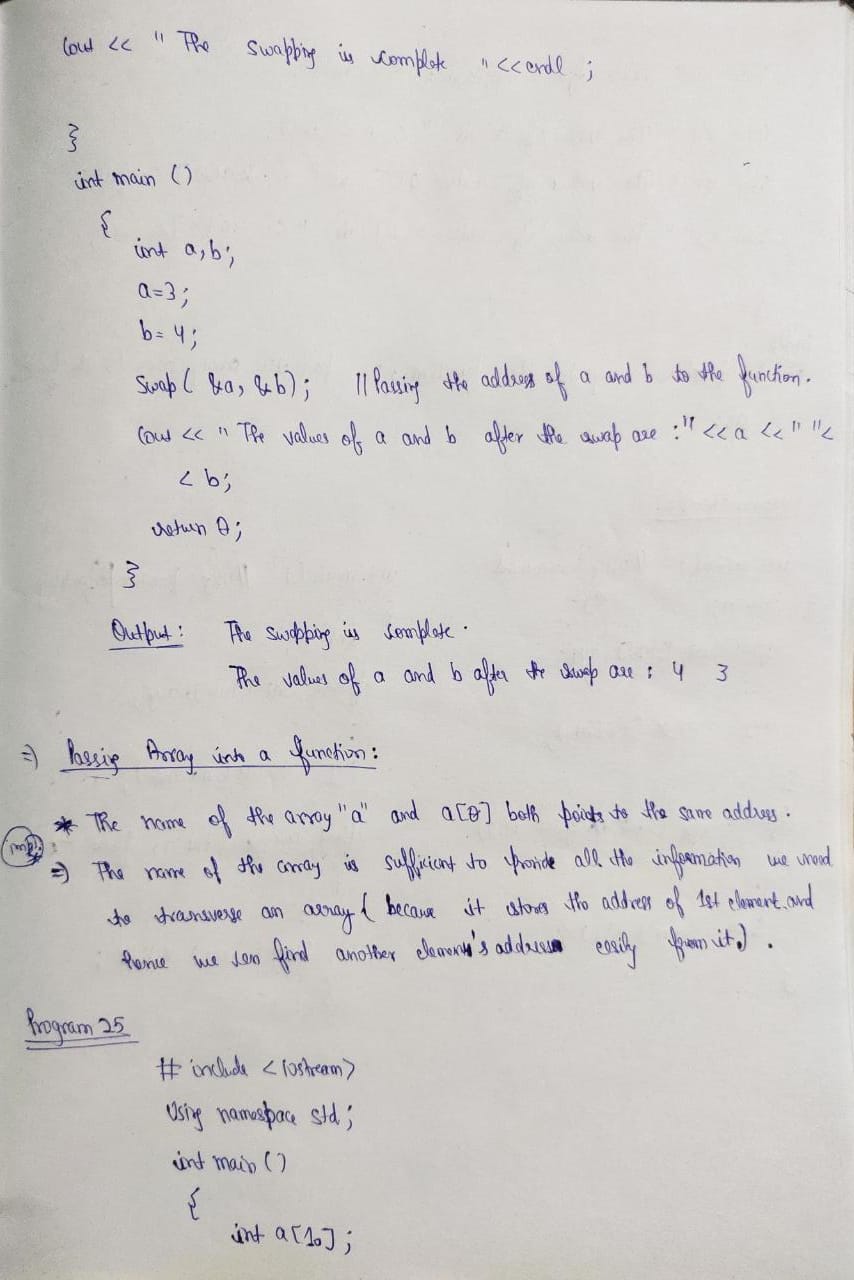 Cout << " The swapping is complete " << endl ;
}
int main ()
{
int a,b;
a=3;
b=4;
Swap ( &a, &b); // Passing the address of a and b to the function.
Cout << " The values of a and b after the swap are :" << a << " " <
< b;
return 0;
}
Output : The swapping is complete .
The values of a and b after the swap are : 4 3
=> Passing Array into a function :
* The name of the array "a" and a[0] both points to the same address .
imp.
=> The name of the array is sufficient to provide all the information we need
to transverse an array ( because it stores the address of 1st element and
hence we can find another elements's address easily from it ) .
Program 25
# include < iostream>
Using namespace std ;
int main ()
{
int a [10] ;